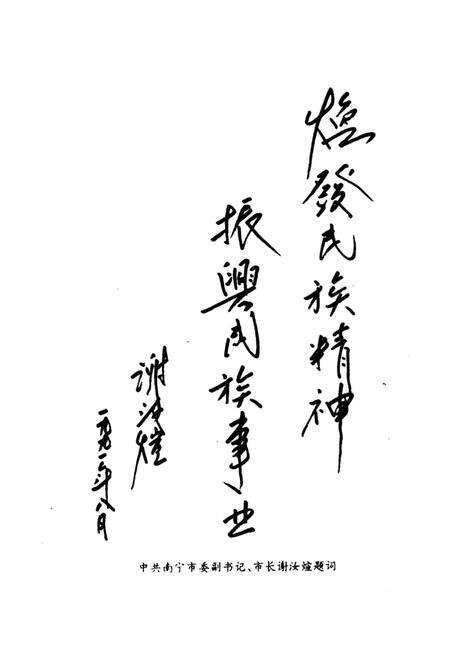 煥發民族精神
振興民族事业
谢汝煊
一九九一年八月
中共南宁市委副书记、市长谢汝煊题词